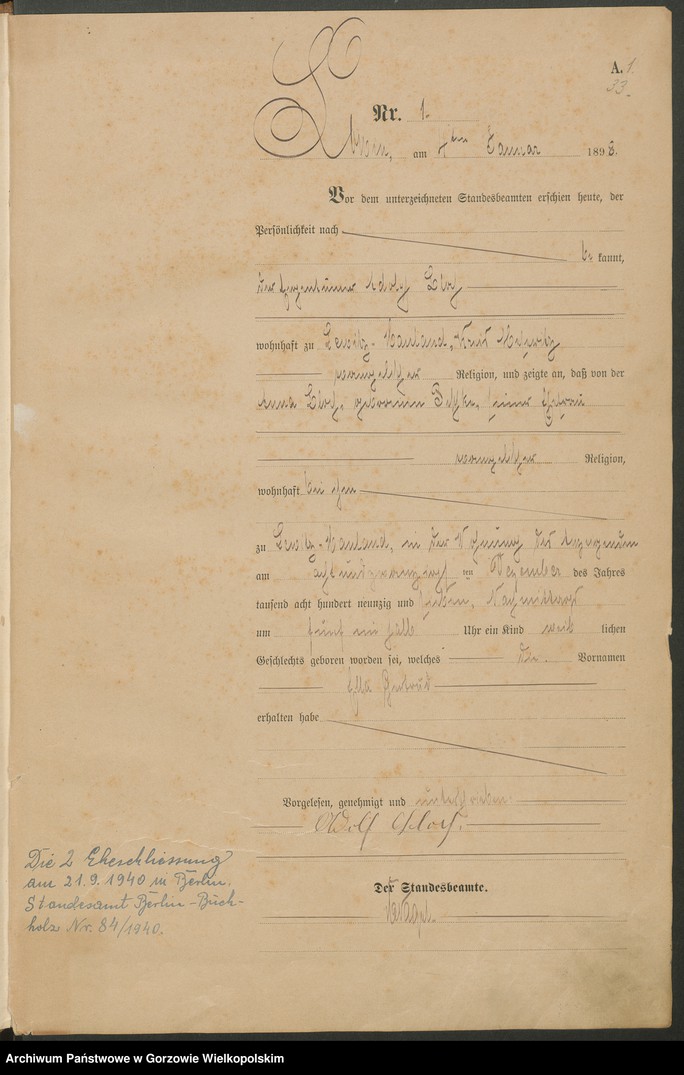 A. 1.
33.
Nr. 1.
am 4ten Januar 1898.
Vor dem unterzeichneten Standesbeamten erschien heute, der
Persönlichkeit nach
be kannt,
der Eigenthümer Adolf
wohnhaft zu Kreis Meseritz
evangelischer Religion, und zeigte an, daß von der
Anna geborenen seiner Ehefrau
evangelischer Religion,
wohnhaft bei ihm
zu in der Wohnung des
am acht und zwanzigsten Dezember des Jahres
tausend acht hundert neunzig und sieben, Nachmittags
um fünf ein halb Uhr ein Kind weib lichen
Geschlechts geboren worden sei, welches die Vornamen
Gertrud
erhalten habe
Vorgelesen, genehmigt und unterschrieben
Adolf
Der Standesbeamte.
Die 2 Eheschliessung
am 21.9.1940 in Berlin.
Standesamt Berlin-Buch-
holz Nr. 84/1940.
Archiwum Państwowe w Gorzowie Wielkopolskim